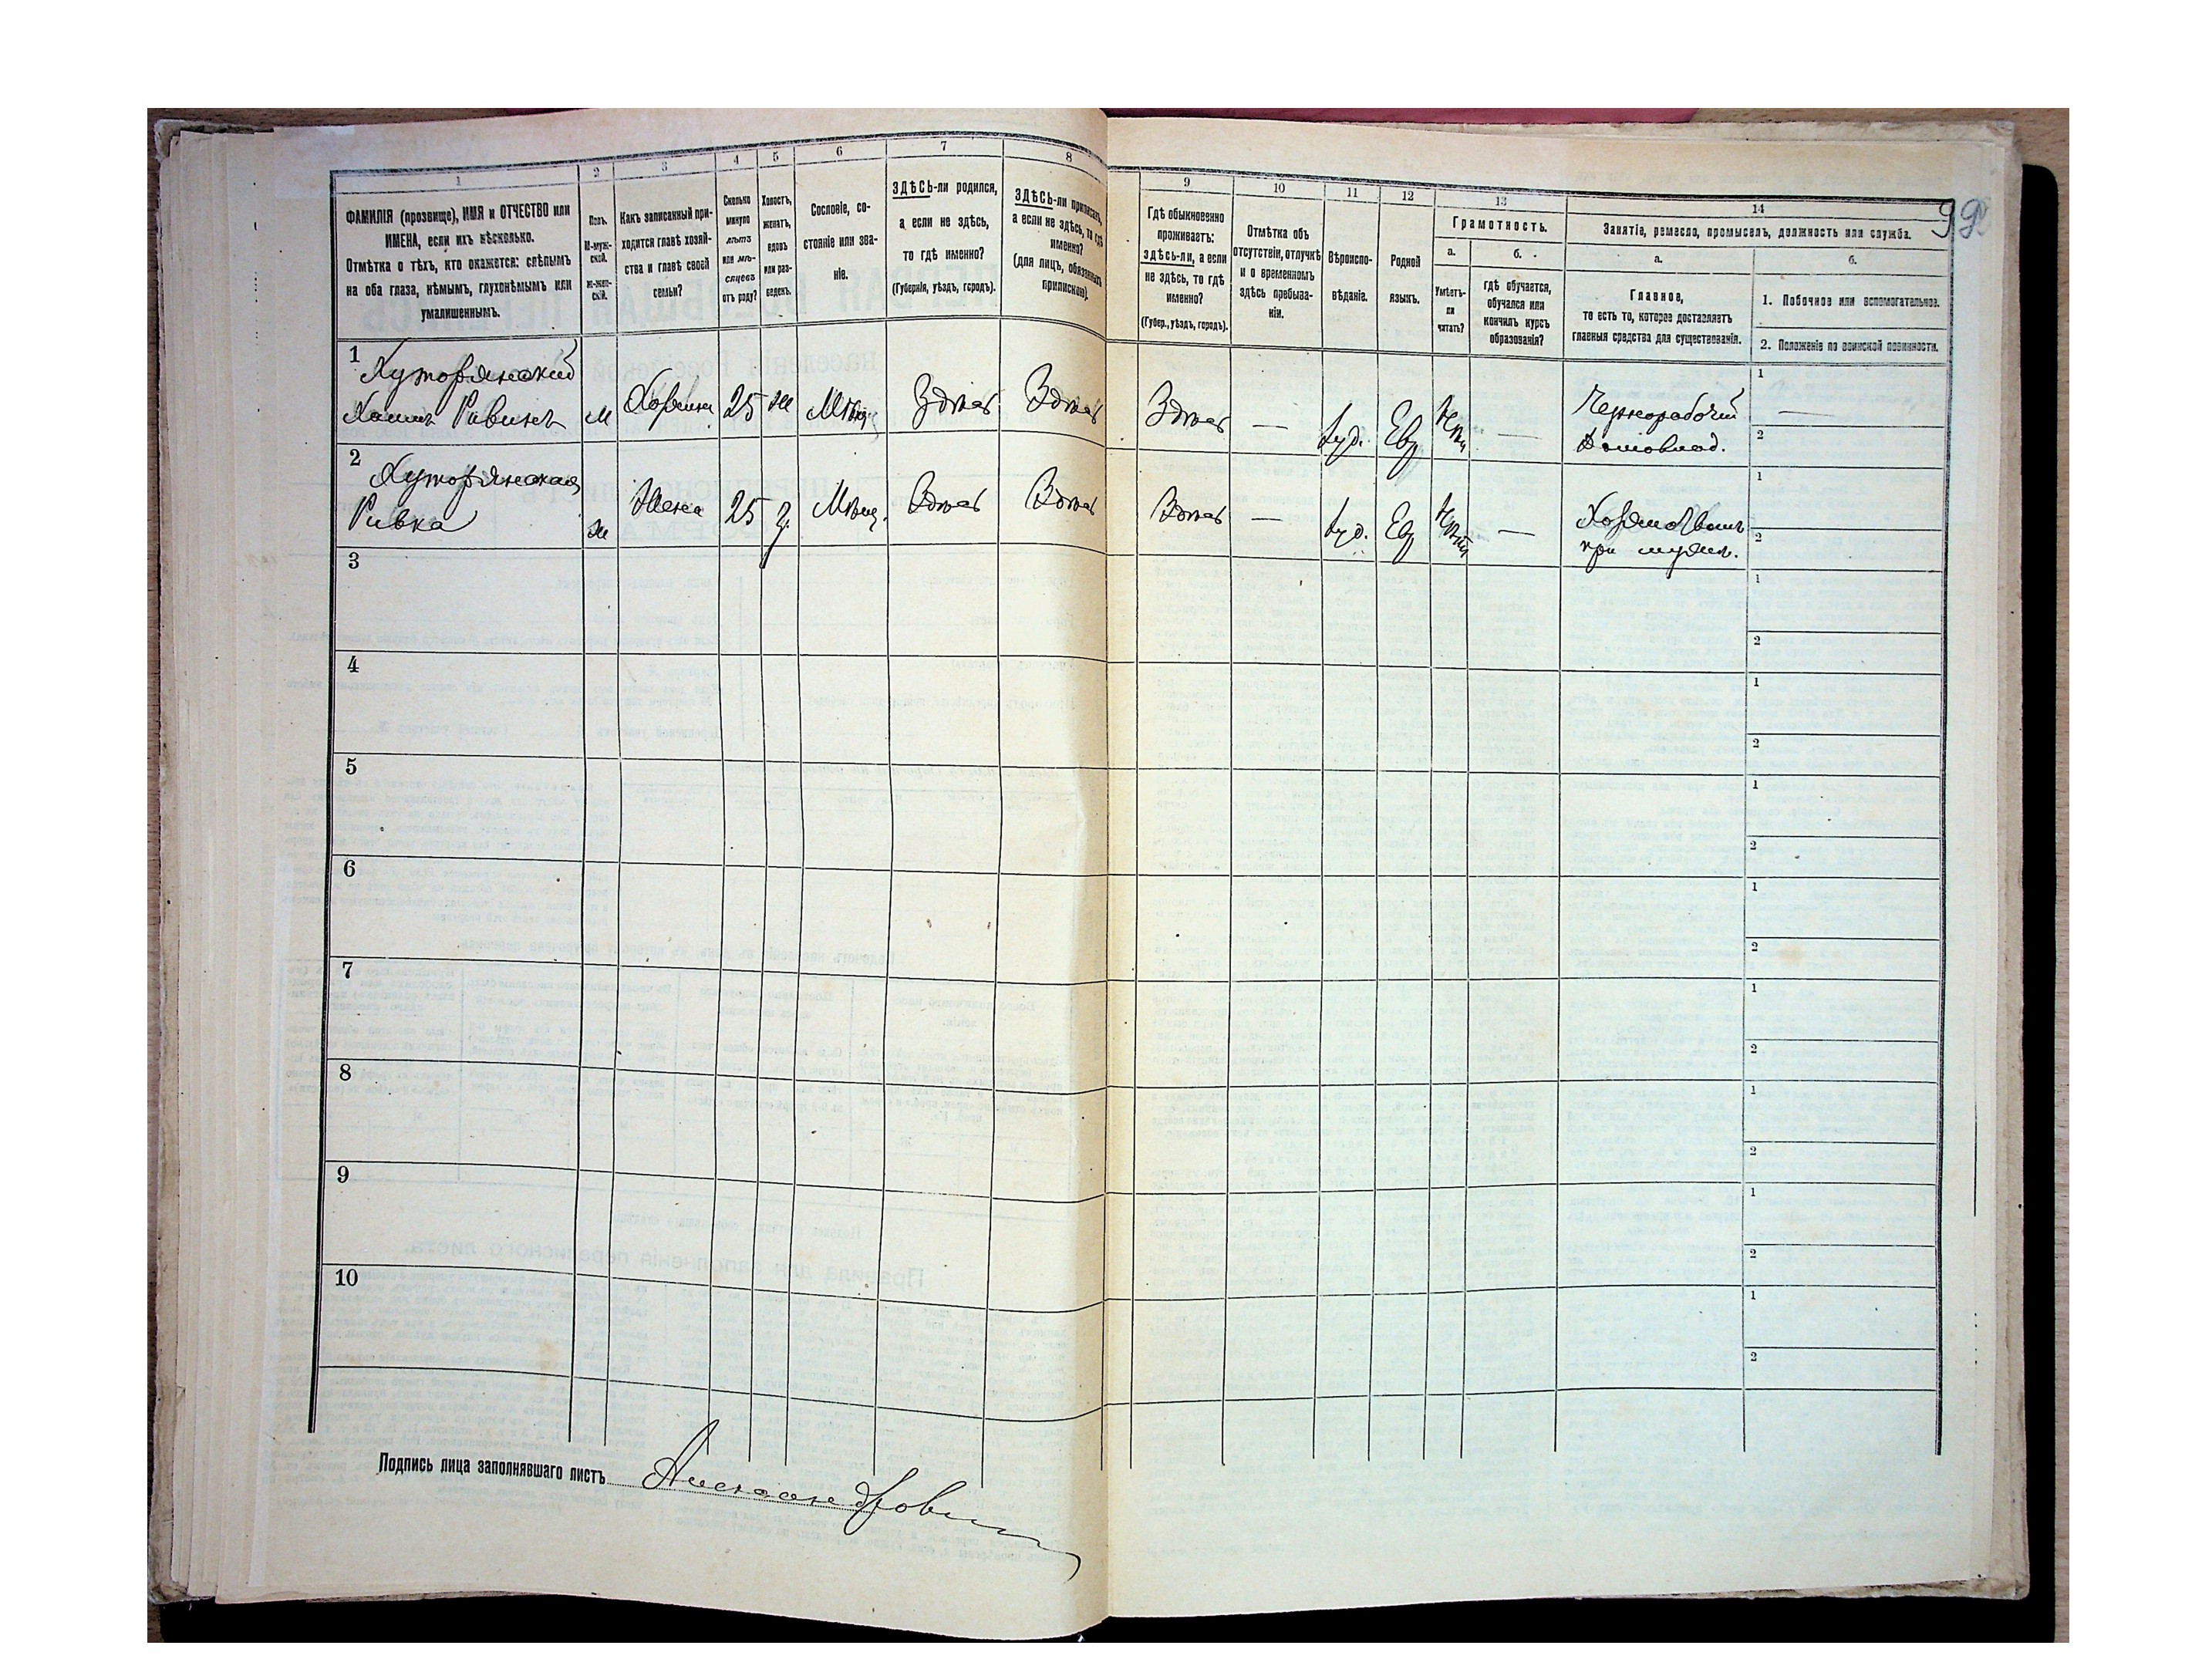 99
1 2 3 4 5 6 7 8 9 10 11 12 13 14
ФАМИЛІЯ (прозвище), ИМЯ и ОТЧЕСТВО или
ИМЕНА, если ихъ нѣсколько.
Отмѣтка о тѣхъ, кто окажется: слѣпымъ
на оба глаза, нѣмымъ, глухонѣмымъ или
умалишеннымъ.
Полъ.
М-муж-
ской.
ж-жен-
скій.
Какъ записанный при-
ходится главѣ хозяй-
ства и главѣ своей
семьи?
Сколько
минуло
лѣтъ
или мѣ-
сяцевъ
отъ роду?
Холостъ,
женатъ,
вдовъ
или раз-
веденъ.
Сословіе, со-
стояніе или зва-
ніе.
ЗДѢСЬ-ли родился,
а если не здѣсь,
то гдѣ именно?
(Губернія, уѣздъ, городъ).
ЗДѢСЬ-ли приписанъ,
а если не здѣсь, то гдѣ
именно?
(для лицъ, обязанныхъ
припискою).
Гдѣ обыкновенно
проживаетъ:
здѣсь-ли, а если
не здѣсь, то гдѣ
именно?
(Губер., уѣздъ, городъ).
Отмѣтка объ
отсутствіи, отлучкѣ
и о временномъ
здѣсь пребыва-
ніи.
Вѣроиспо-
вѣданіе.
Родной
языкъ.
Грамотность.
а.
Умѣетъ-
ли
читать?
б.
гдѣ обучается,
обучался или
кончилъ курсъ
образованія?
Занятіе, ремесло, промыселъ, должность или служба.
а.
Главное,
то есть то, которое доставляетъ
главныя средства для существованія.
б.
1. Побочное или вспомогательное.
2. Положеніе по воинской повинности.
1 Хуторянскій
Хаимъ Ривинъ М Хозяинъ 25 ж Мѣщ. Здѣсь Здѣсь Здѣсь — Іуд. Евр Нѣтъ — Чернорабочій —
Домовлад.
2 Хуторянская
Ривка ж Жена 25 з. Мѣщ. Здѣсь Здѣсь Здѣсь — Іуд. Евр Нѣтъ —
при мужѣ.
3
4
5
6
7
8
9
10
1
2
1
2
1
2
1
2
1
2
1
2
1
2
1
2
1
2
1
2
Подпись лица заполнявшаго листъ Александрович